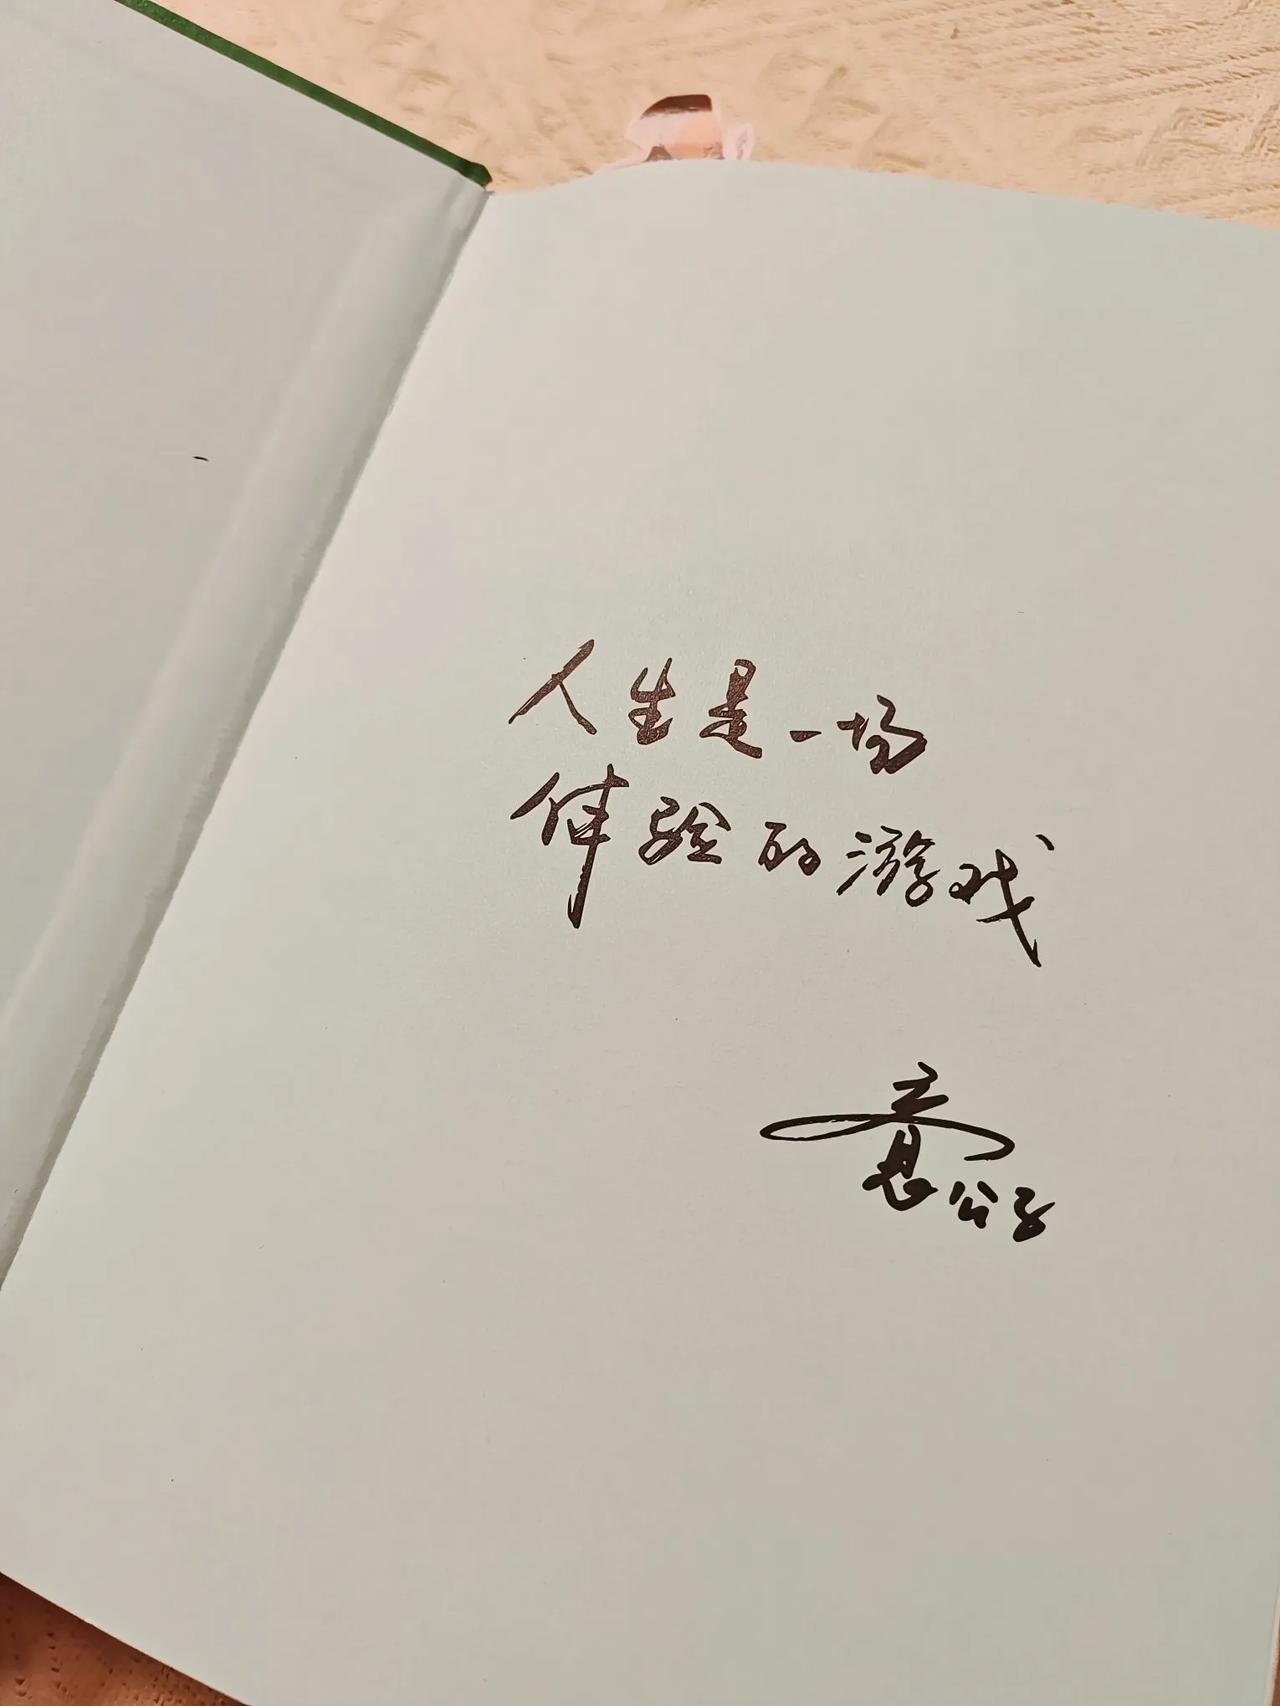 人生是一场
体验的游戏
意公子